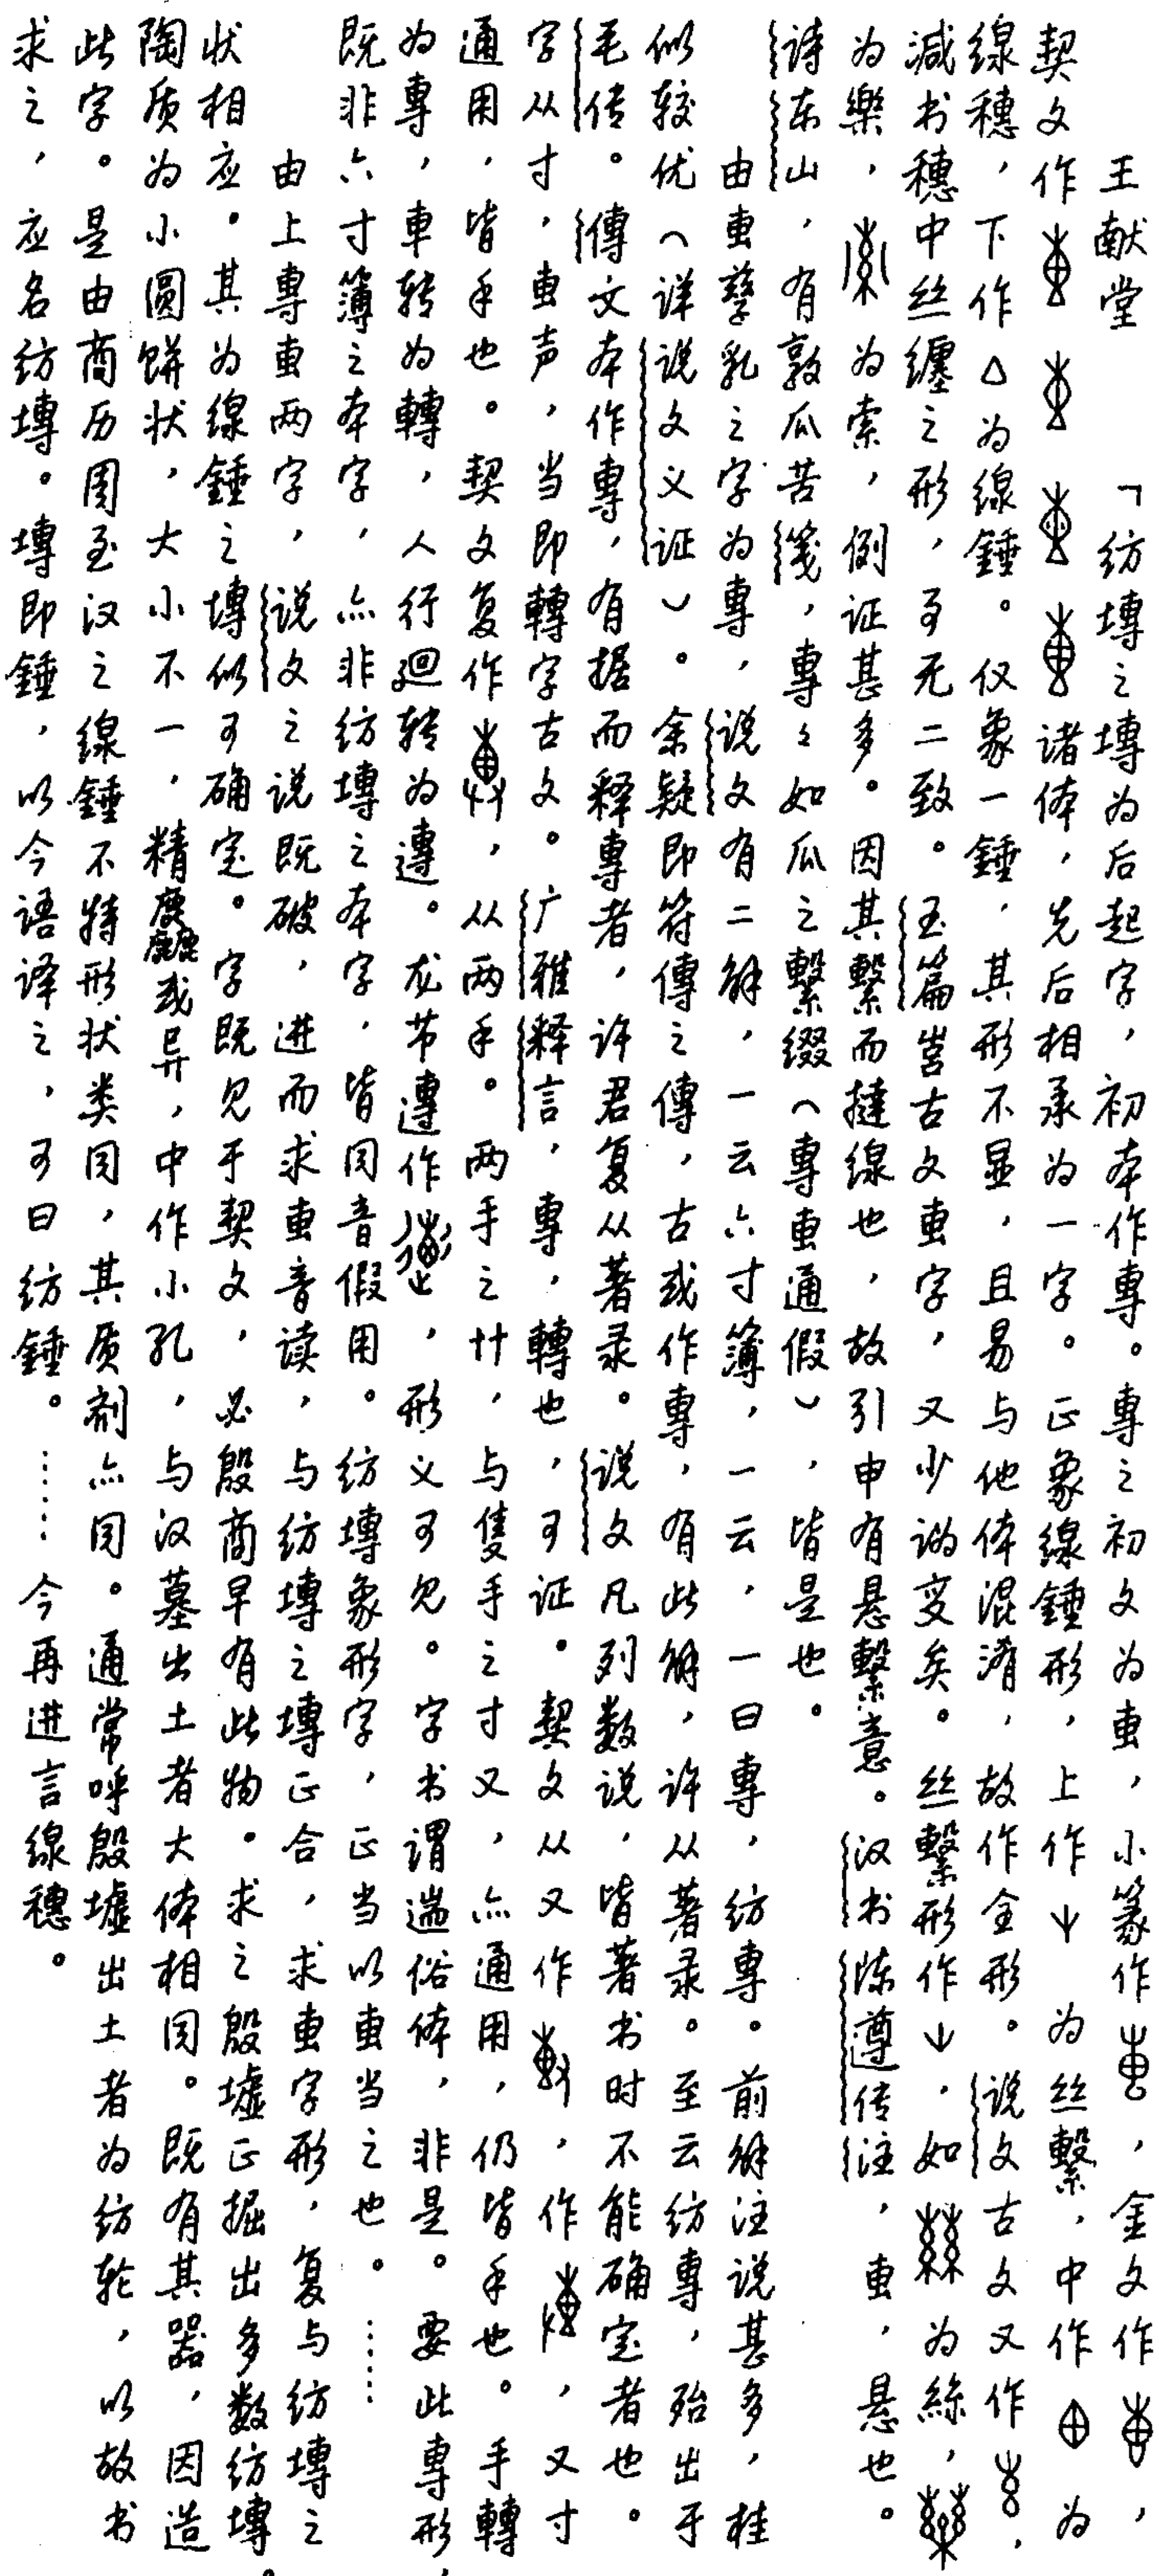 王献堂　「纺塼之塼为后起字，初本作專。專之初文为叀，小篆作，金文作，
契文作诸体，先后相承为一字。正象線錘形，上作为丝繫，中作为
線穗，下作△为線錘。仅象一錘，其形不显，且易与他体混淆，故作全形。说文古文又作，
减书穗中丝纏之形，可无二致。玉篇古文叀字，又少讹变矣。丝繫形作，如为絲，
为樂，为索，例证甚多。因其繫而撻線也，故引申有悬繫意。汉书陈遵传注，叀，悬也。
诗东山，有敦瓜苦笺，專々如瓜之繫缀（專叀通假），皆是也。
由叀孳乳之字为專，说文有二解，一云六寸簿，一云，一曰專，纺專。前解注说甚多，桂
似较优（详说文义证）。余疑即符傳之傳，古或作專，有此解，许从著录。至云纺專，殆出于
毛传。傳文本作專，有据而释專者，许君复从著录。说文凡列数说，皆著书时不能确定者也。
字从寸，叀声，当即轉字古文。广雅释言，專，轉也，可证。契文从又作，作，又寸
通用，皆手也。契文复作，从两手。两手之廾，与隻手之寸又，亦通用，仍皆手也。手轉
为專，車转为轉，人行廻转为遱。龙节遱作，形义可见。字书谓遄俗体，非是。要此專形
既非六寸簿之本字，亦非纺塼之本字，皆同音假用。纺塼象形字，正当以叀当之也。……
由上專叀两字，说文之说既破，进而求叀音读，与纺塼之塼正合，求叀字形，复与纺塼之
状相应。其为線錘之塼似可确定。字既见于契文，必殷商早有此物。求之殷墟正掘出多数纺塼。
陶质为小圆餅状，大小不一，精麤或异，中作小孔，与汉墓出土者大体相同。既有其器，因造
此字。是由商历周至汉之線錘不特形状类同，其质剂亦同。通常呼殷墟出土者为纺轮，以故书
求之，应名纺塼。塼即錘，以今语译之，可曰纺錘。……今再进言線穗。